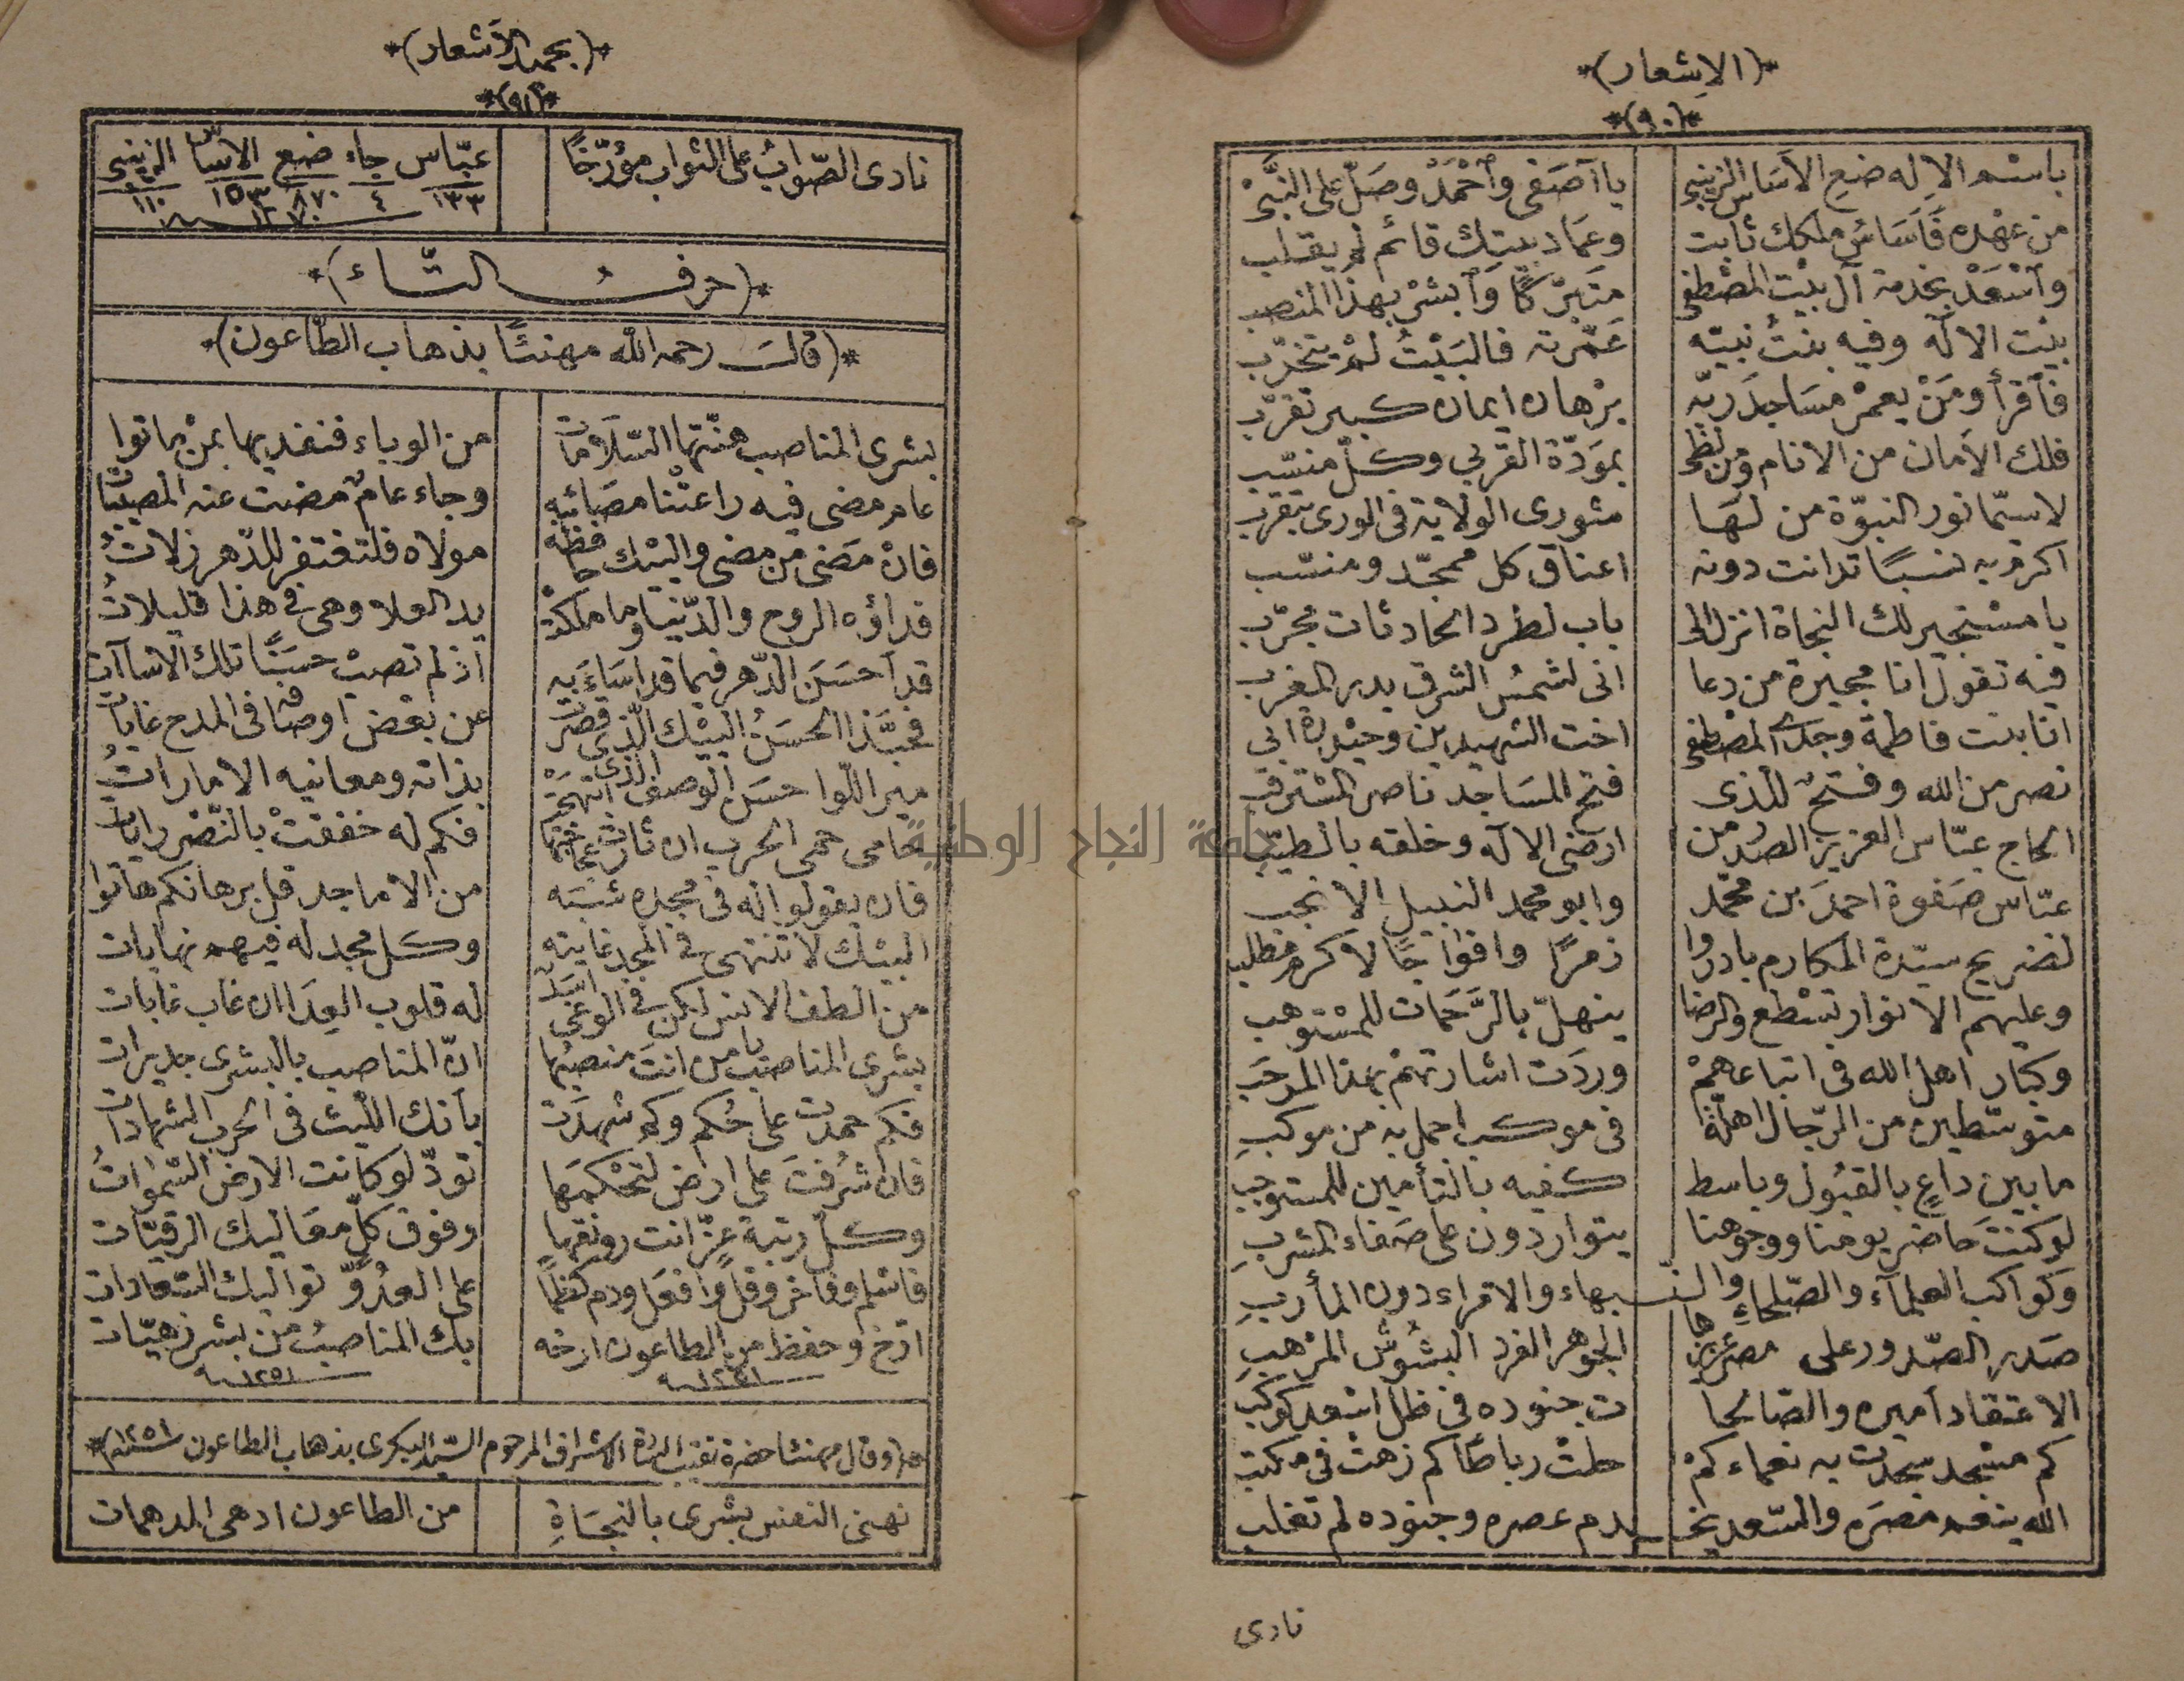 *(الإشعار)*
*(٩٠)*
باسم الإله ضع الأساس الزينبي يا آصفى وأحمد وصل على النبي
من عهده فأساس ملكك ثابت وعماد بيتك قائم لم يقلب
وأسعد بخدمة آل بيت المصطفى متبركا وأبشر بهذا المنصب
بيت الاله وفيه بنت نبيه عمرته فالبيت لم يتخرب
فاقرأ ومن يعمر مساجد ربه برهان ايمان كبير تقرب
فلك الأمان من الانام ومن لظى بمودة القربى وكل منسب
لاسيما نور النبوة من لها مثوى الولاية فى الورى بتقرب
اكرم به نسبا تدانت دونه اعناق كل ممجد ومنسب
يا مستجير لك النجاة انزل الى باب لطرد الحادثات مجرب
فيه تقول انا مجيرة من دعا انى لشمس الشرق بدر المغرب
انا بنت فاطمة وجدى المصطفى اخت الشهيدين وحيدرة ابى
نصر من الله وفتح للذى فتح المساجد ناصر المشترف
الحاج عباس العزيز الصدر من ارضى الاله وخلقه بالطيب
عباس صفوة احمد بن محمد وابو محمد النبيل الانجب
لضريح سيدة المكارم بادروا زمرا وافواجا لاكرم مطلب
وعليهم الانوار تسطع والرضا ينهل بالرحمات للمستوهب
وكبار اهل الله فى اتباعهم وردت اشارتهم بهذا المرحب
متوسطين من الرجال اهلة فى موكب اجمل به من موكب
ما بين داع بالقبول وباسط كفيه بالتأمين للمستوجب
لو كنت حاضر يومنا ووجوهنا يتواردون على صفاء المشرب
وكواكب العلماء والصلحاء والنبهاء والامراء دون المأرب
صدر الصدور على مصر عزيزها الجوهر الفرد البشوش المرهب
الاعتقاد اميره والصالحا ت جنوده فى ظل اسعد كوكب
كم مسجد سجدت به نعماء كم حلت رباطا كم زهت فى مكتب
الله ينعم مصره والسعد يخـدم عصره وجنوده لم تغلب
نادى
*(بحمد الأشعار)*
*(٩١)*
نادى الصواب على الثواب مؤرخا عباس جاء ضع الاساس الزينبى
١٣٣ ٤ ٨٧٠ ١٥٣ ١١٠
١٢٧٠
*(حرف التاء)*
*(قال رحمه الله مهنئا بذهاب الطاعون)*
بشرى المناصب هنتها السلامات من الوباء فنفديها بمن ماتوا
عام مضى فيه راعتنا مصائبه وجاء عام مضت عنه المصيبات
فان مضى من مضى والبيك حافظه مولاه فلتغتفر للدهر زلات
فداؤه الروح والدنيا وما ملكت يد العلا وهى فى هذا قليلات
قد احسن الدهر فيما قد اساء به اذ لم تصب حسنا تلك الاساآت
فحبذا الحسن البيك الذى قصرت عن بعض اوصافه فى المدح غايات
مير اللوا حسن الوصف الذى ابتهجت بذاته ومعانيه الامارات
حامى حمى الحرب ان ثارت عجاجتها فكم له خفقت بالنصر رايات
فان يقولوا له فى مجده شبه من الاماجد قل برهانكم هاتوا
البيك لا تنتهى فى المجد غايته وكل مجد له فيهم نهايات
من الطف الانس لكن فى الوغى اسد له قلوب العدا ان غاب غابات
بشرى المناصب يا من انت منصبها ان المناصب بالبشرى جديرات
فكم حمدت على حكم وكم شهدت بأنك الليث فى الحرب الشهادات
فان شرفت على ارض لتحكمها تود لو كانت الارض السموات
وكل رتبة عز انت رونقها وفوق كل معاليك الرقيات
فاسلم وفاخر وقل وافعل ودم كظما على العدو تواليك السعادات
ارخ وحفظ من الطاعون ارخه بك المناصب من بشر زهيات
١٢٥١ ١٢٥١
*(وقال مهنئا حضرة نقيب السادة الاشراف المرحوم السيد البكرى بذهاب الطاعون سنة ١٢٥١)*
نهنى النفس بشرى بالنجاة من الطاعون ادهى المدهمات